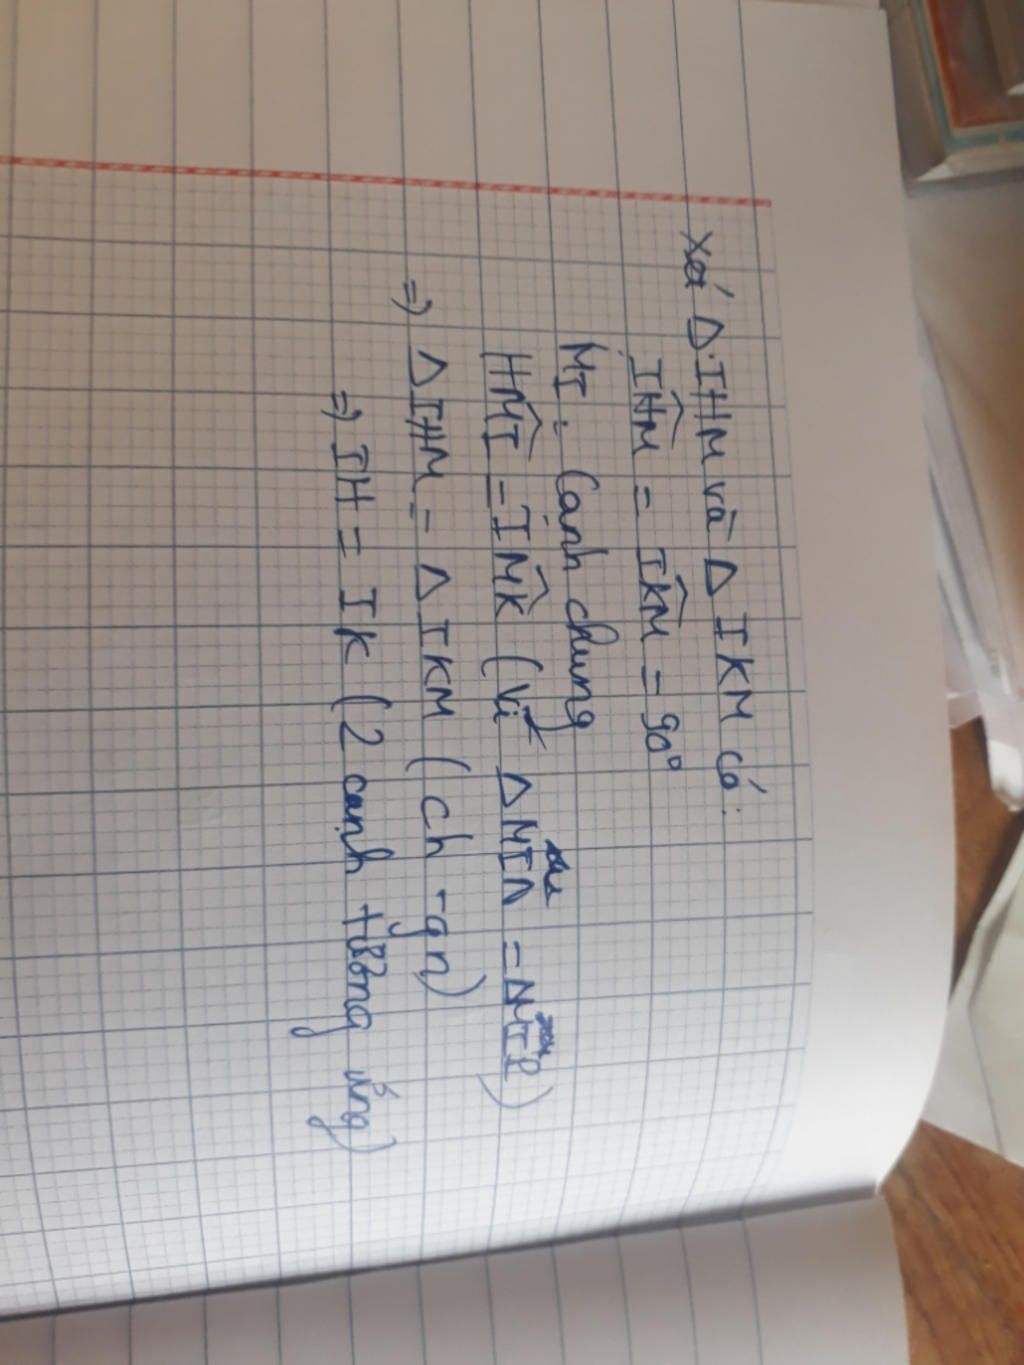 Xét Δ IHM và Δ IKM có:
IĤM = IK̂M = 90°
MI: Cạnh chung
HM̂I = IM̂K (Vì Δ MIN = Δ MIP)
=> Δ IHM = Δ IKM (ch - gn)
=> IH = IK (2 cạnh tương ứng)